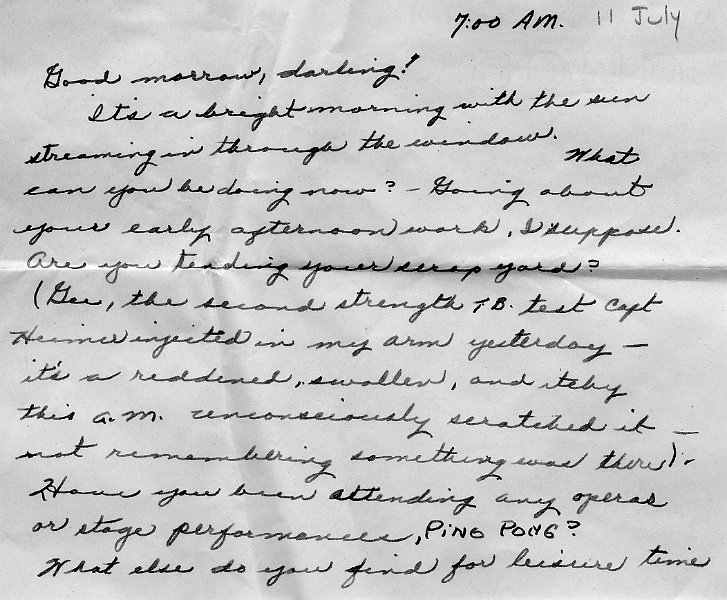 7:00 AM. 11 July
Good morrow, darling!
It's a bright morning with the sun
streaming in through the window. What
can you be doing now? - Going about
your early afternoon work, I suppose.
Are you tending your scrap yard?
(Gee, the second strength T.B. test Capt
injected in my arm yesterday —
it's a reddened, swollen, and itchy
this a.m. unconsciously scratched it —
not remembering something was there).
Have you been attending any operas
or stage performances, PING PONG?
What else do you find for leisure time